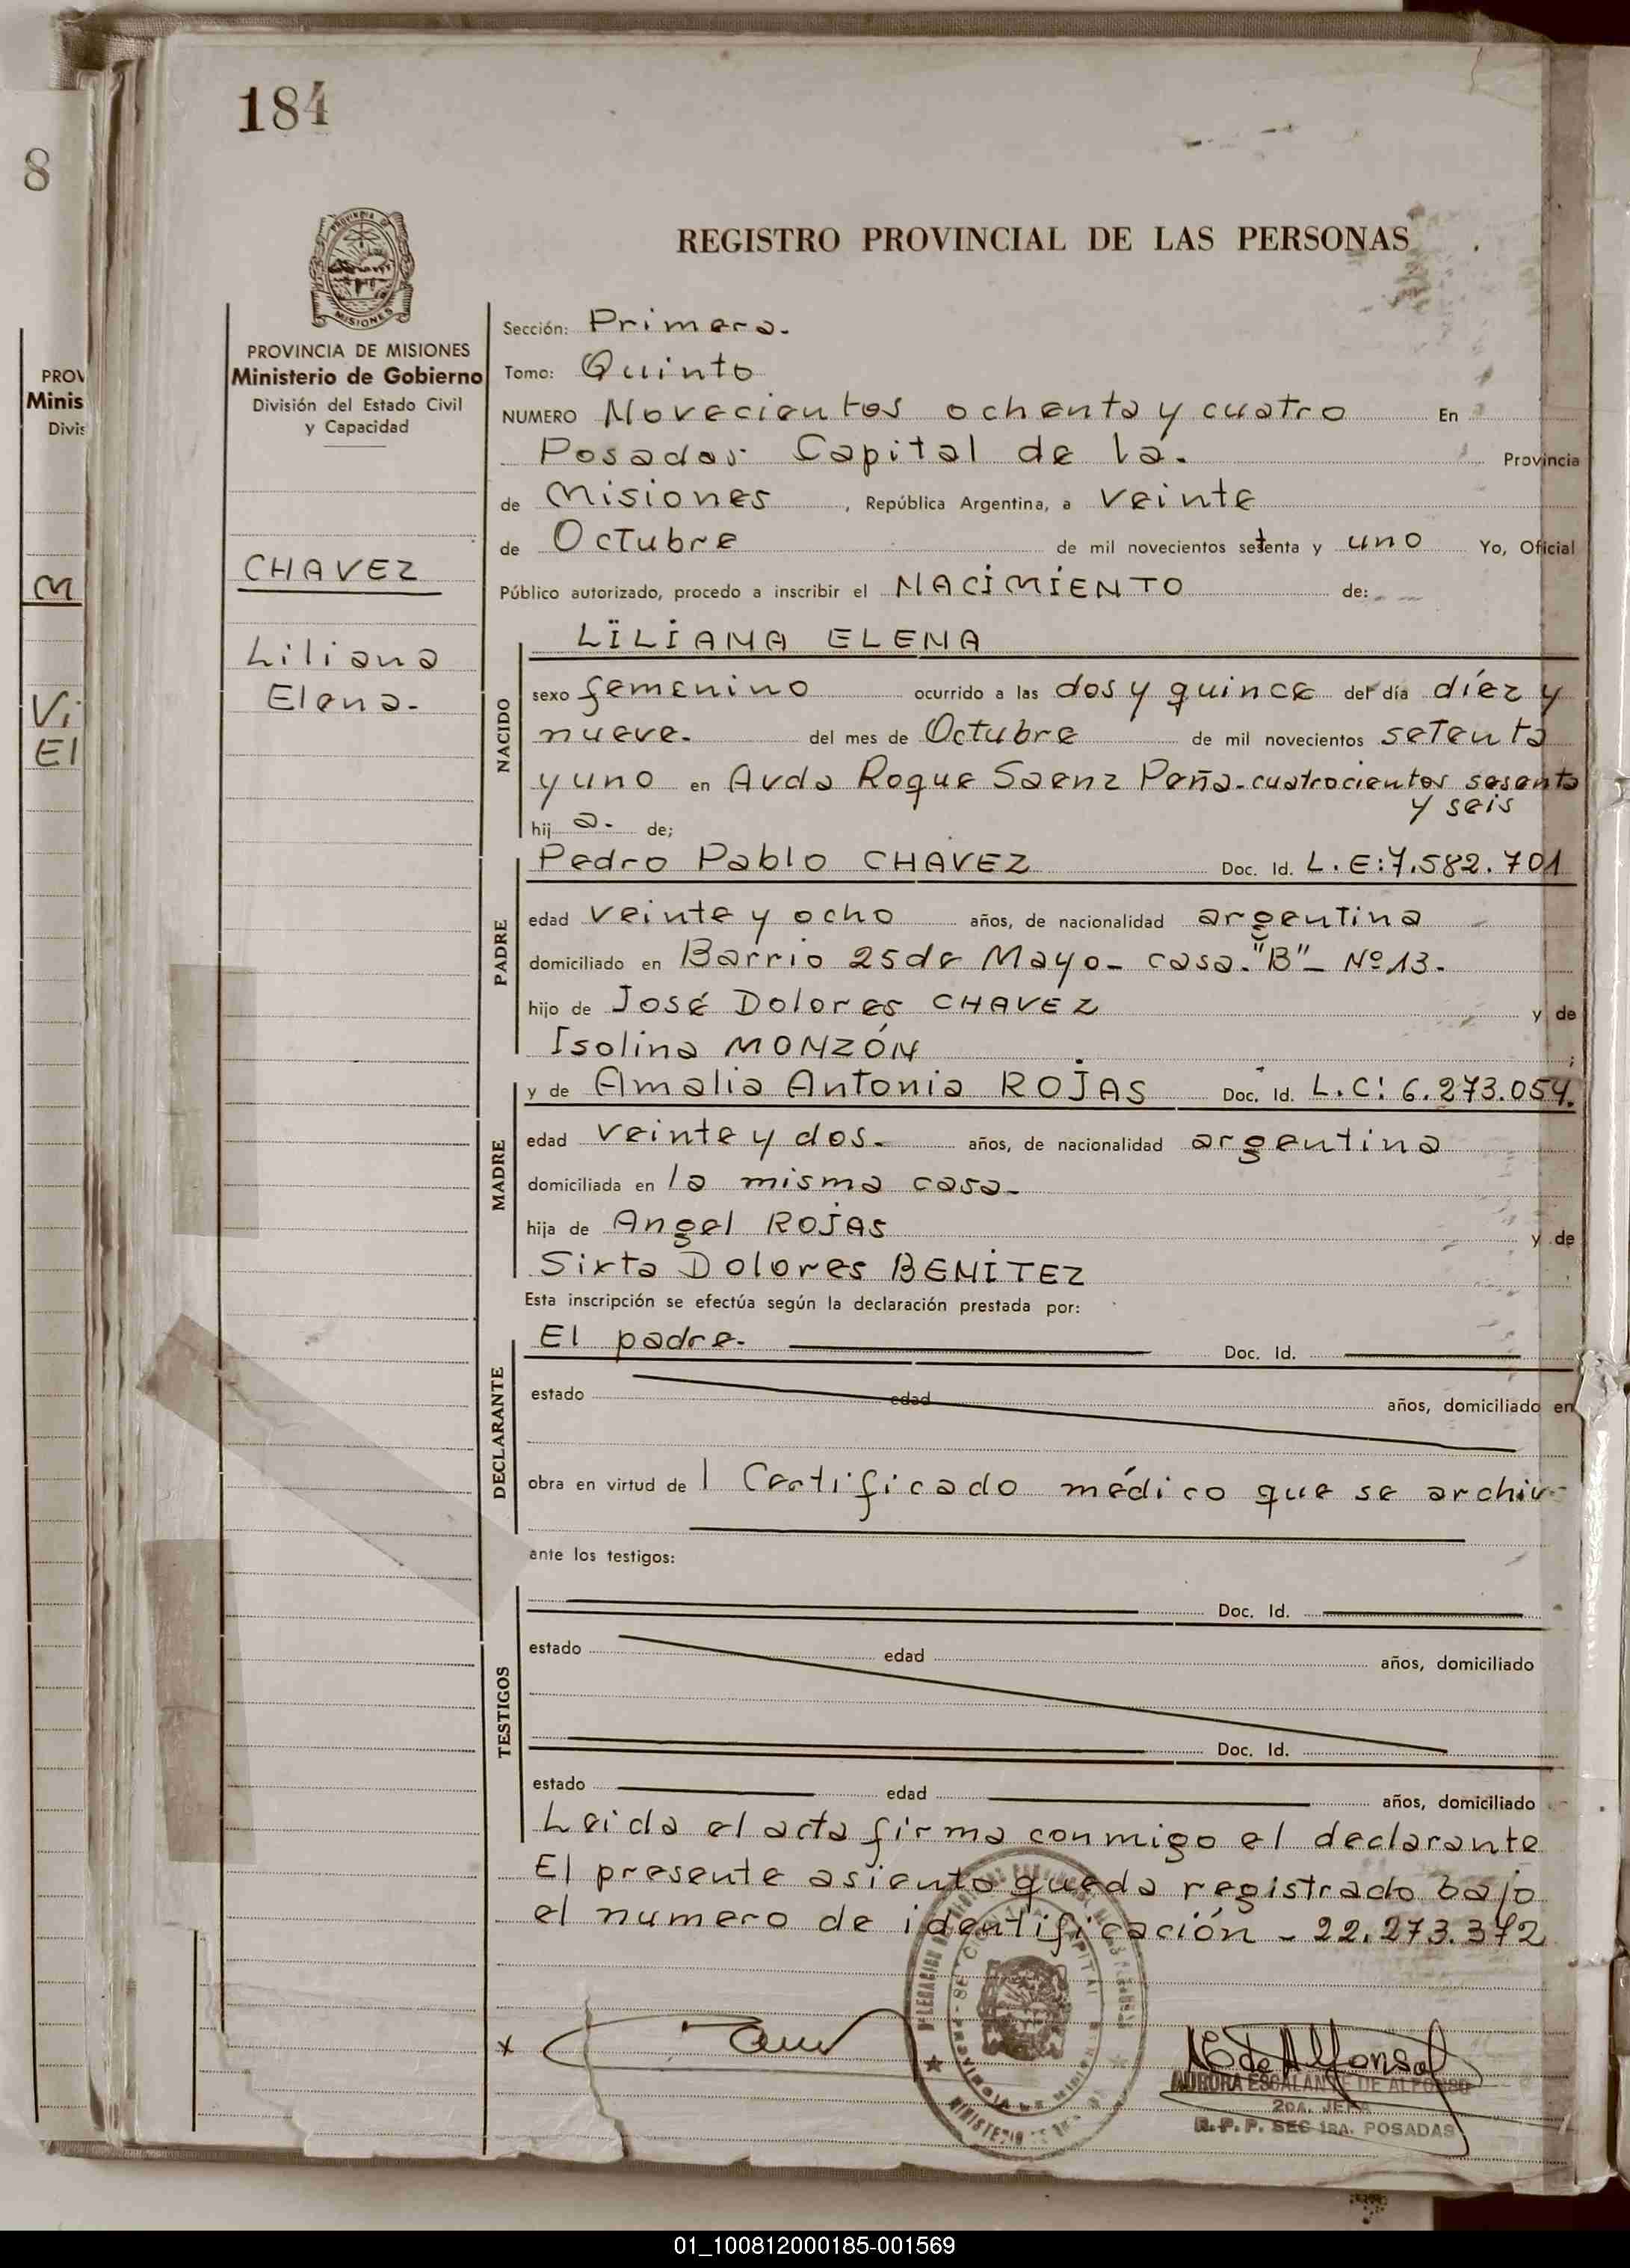 184
8
REGISTRO PROVINCIAL DE LAS PERSONAS
PROVINCIA DE MISIONES
Ministerio de Gobierno
División del Estado Civil
y Capacidad
PROV
Minis
Divis
M
Vi
El
CHAVEZ
Liliana
Elena.
Sección: Primera.
Tomo: Quinto
NUMERO Novecientos ochenta y cuatro En
Posadas Capital de la. Provincia
de Misiones, República Argentina, a veinte
de Octubre de mil novecientos setenta y uno Yo, Oficial
Público autorizado, procedo a inscribir el NACIMIENTO de:
LILIANA ELENA
NACIDO
sexo femenino ocurrido a las dos y quince del día diez y
nueve. del mes de Octubre de mil novecientos setenta
y uno en Avda Roque Saenz Peña-cuatrocientos sesenta
y seis
hij a. de;
Pedro Pablo CHAVEZ Doc. Id. L.E:7.582.701
PADRE
edad veinte y ocho años, de nacionalidad argentina
domiciliado en Barrio 25 de Mayo- casa."B"- Nº 13.
hijo de José Dolores CHAVEZ y de
Isolina MONZÓN
y de Amalia Antonia ROJAS Doc. Id. L.C: 6.273.054.
MADRE
edad veinte y dos. años, de nacionalidad argentina
domiciliada en la misma casa-
hija de Angel ROJAS y de
Sixta Dolores BENITEZ
Esta inscripción se efectúa según la declaración prestada por:
El padre. Doc. Id.
DECLARANTE
estado edad años, domiciliado en
obra en virtud de 1 Certificado médico que se archiv
ante los testigos:
Doc. Id.
TESTIGOS
estado edad años, domiciliado
Doc. Id.
estado edad años, domiciliado
Leida el acta firma conmigo el declarante
El presente asiento queda registrado bajo
el numero de identificación - 22.273.372
x
AURORA ESCALANTE DE ALFONSO
2DA. JEFA
R.P.P. SEC 1RA. POSADAS
01_100812000185-001569